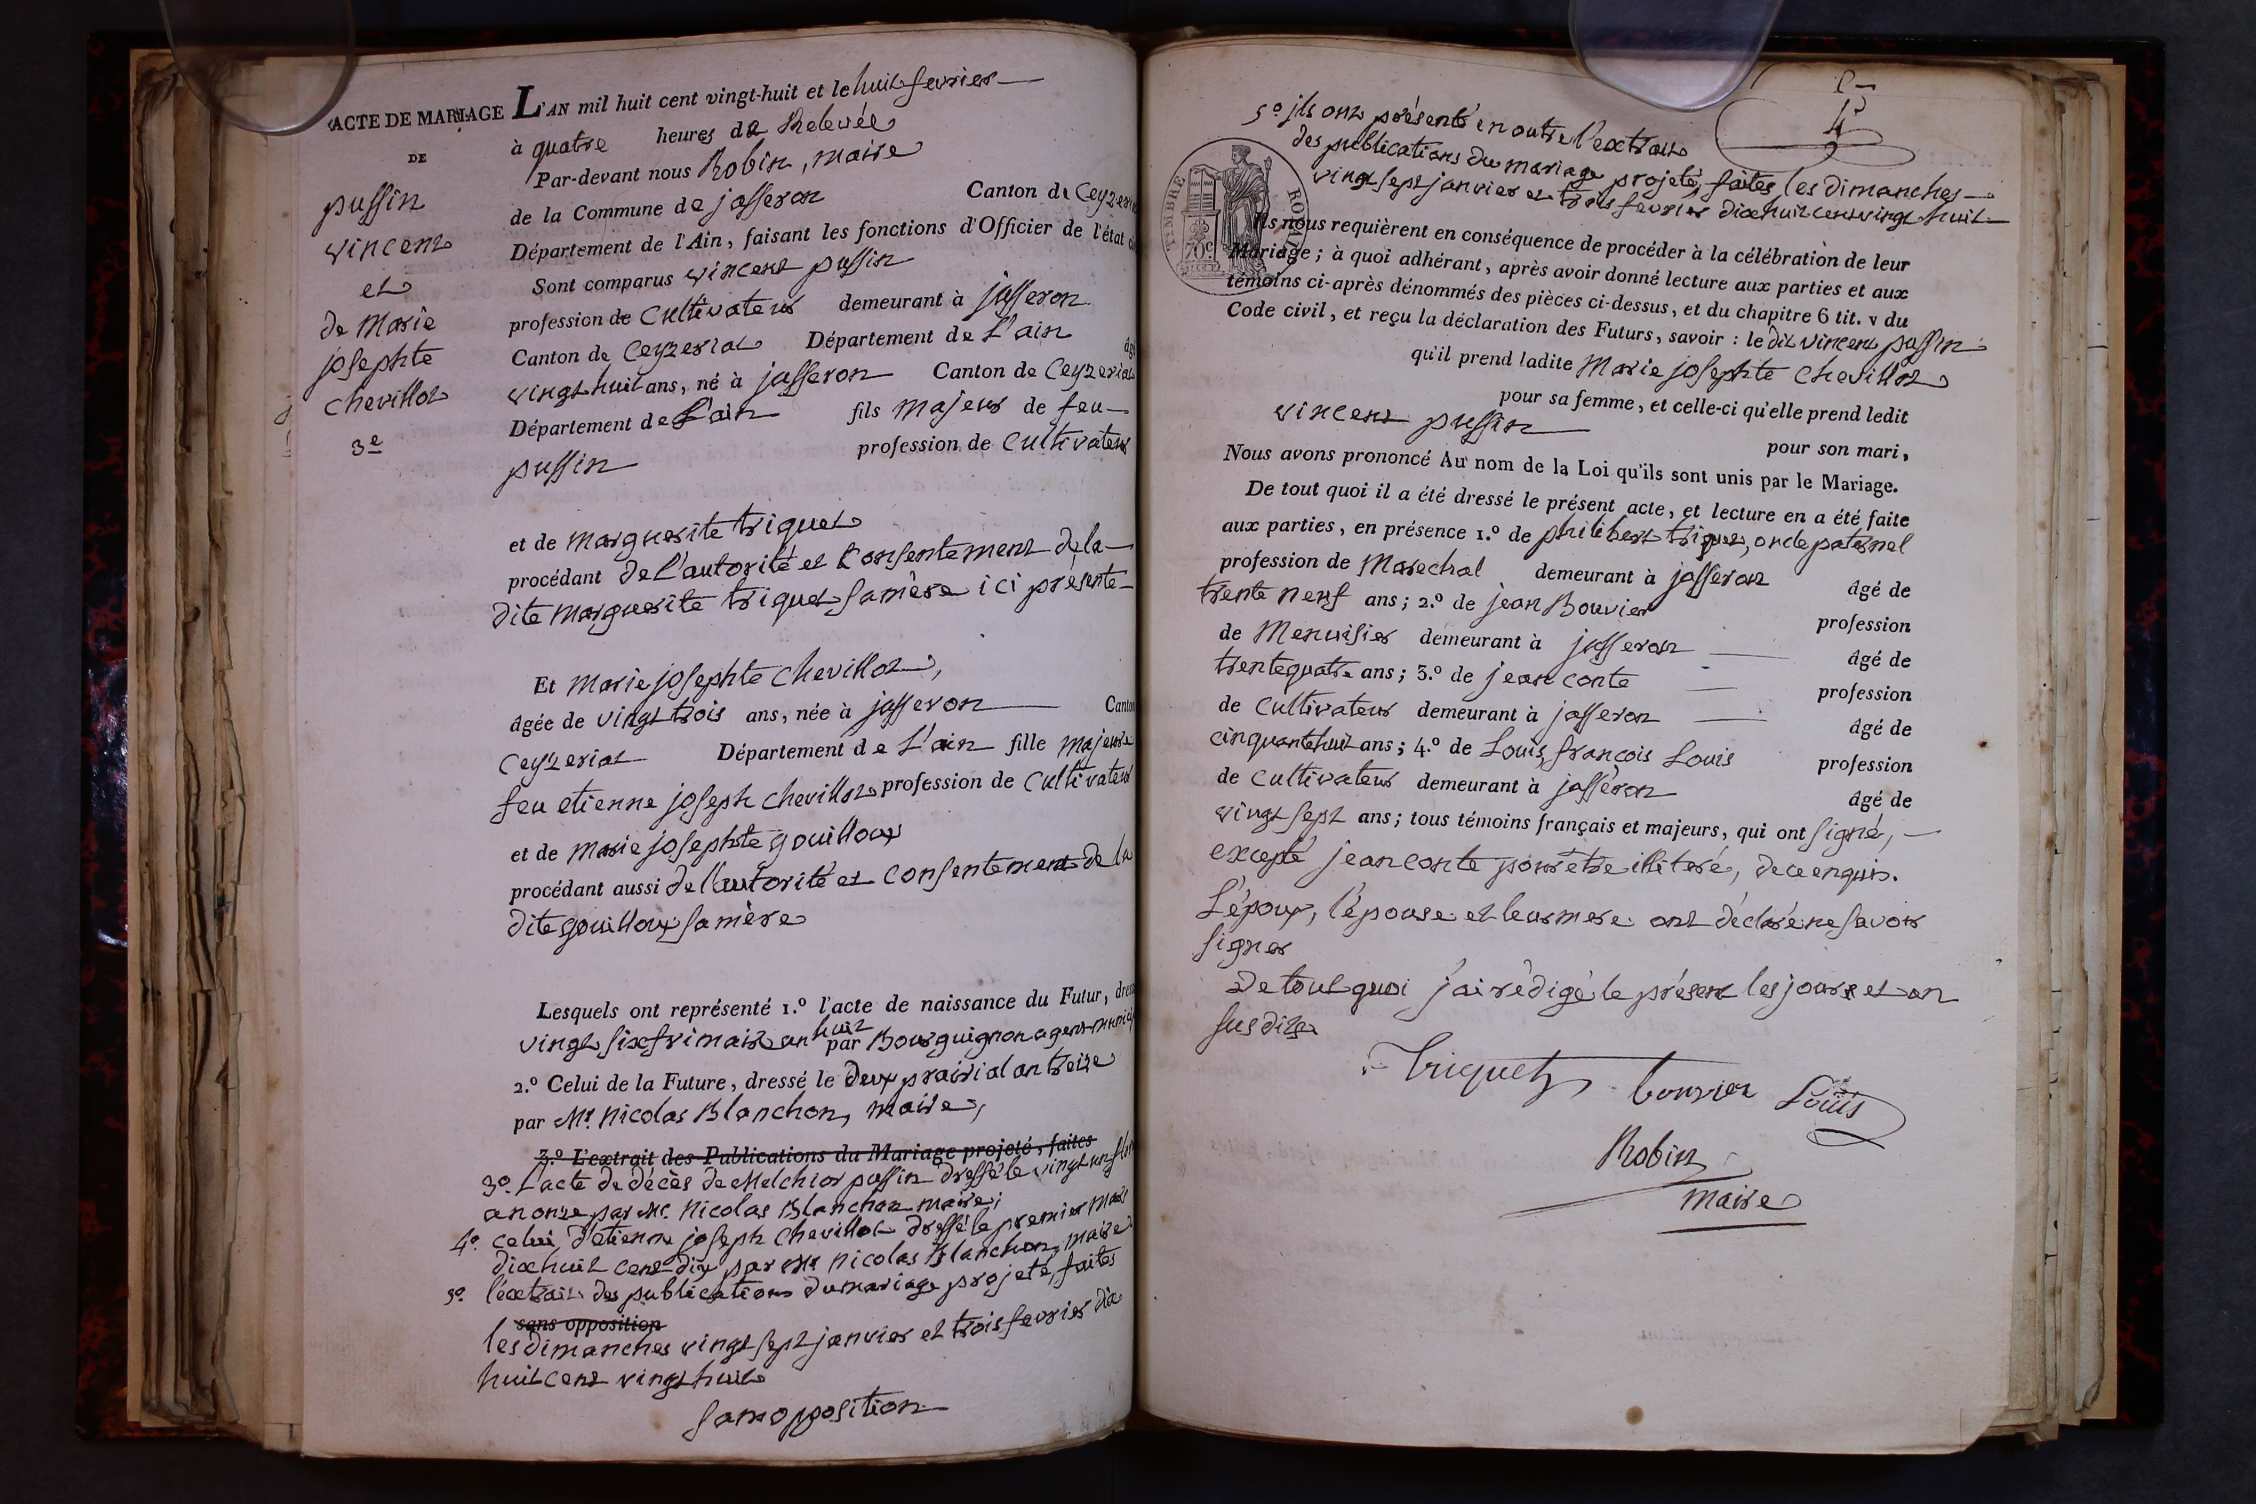 ACTE DE MARIAGE
DE
puffin
vincent
et
de Marie
josephte
chevillot
3e
L'AN mil huit cent vingt-huit et le huit fevrier
à quatre heures de Relevée
Par-devant nous Robin, maire
de la Commune de jasseron Canton de Ceyzeria
Département de l'Ain, faisant les fonctions d'Officier de l'état
Sont comparus vincent puffin
profession de Cultivateur demeurant à jasseron
Canton de Ceyzeriat Département de L'ain âgé
vingt huit ans, né à jasseron Canton de Ceyzeriat
Département de L'ain fils majeur de feu
puffin profession de Cultivateur
et de marguerite triquet
procédant de L'autorité et Consentement de la
dite marguerite triquet sa mère ici présente
Et Marie josephte Chevillot,
âgée de vingt trois ans, née à jasseron Canton
Ceyzeriat Département de L'ain fille majeure
feu etienne joseph chevillot profession de Cultivateur
et de marie josephte gouilloux
procédant aussi de l'autorité et Consentement de la
dite gouilloux sa mère
Lesquels ont représenté 1.º l'acte de naissance du Futur,
vingt six frimaire an huit par Bourguignon agent
2.º Celui de la Future, dressé le deux prairial an treize
par Mr. Nicolas Blanchon, maire,
3.º L'extrait des Publications du Mariage projeté, faites
3º. L'acte de décès de Melchior puffin dressé le vingt un
an onze par Mr. Nicolas Blanchon maire;
4º. celui d'etienne joseph chevillot dressé le premier mars
dix huit cent dix par Mr Nicolas Blanchon, maire
5º. l'extrait des publications du mariage projeté, faites
sans opposition
les dimanches vingt sept janvier et trois fevrier dix
huit cent vingt huit
sans opposition
5º jls ont présenté en outre l'extrait
des publications du mariage projeté, faites les dimanches
vingt sept janvier et trois fevrier dix huit cent vingt huit
TIMBRE ROYAL
70c
Ils nous requièrent en conséquence de procéder à la célébration de leur
Mariage; à quoi adhérant, après avoir donné lecture aux parties et aux
témoins ci-après dénommés des pièces ci-dessus, et du chapitre 6 tit. v du
Code civil, et reçu la déclaration des Futurs, savoir: le dit vincent puffin
qu'il prend ladite Marie josephte Chevillot
pour sa femme, et celle-ci qu'elle prend ledit
vincent puffin pour son mari,
Nous avons prononcé Au nom de la Loi qu'ils sont unis par le Mariage.
De tout quoi il a été dressé le présent acte, et lecture en a été faite
aux parties, en présence 1.º de philibert triquet, oncle paternel
profession de Marechal demeurant à jasseron âgé de
trente neuf ans; 2.º de jean Bouvier profession
de Menuisier demeurant à jasseron âgé de
trente quatre ans; 3.º de jean conte profession
de Cultivateur demeurant à jasseron âgé de
cinquante huit ans; 4.º de Louis, françois Louis profession
de Cultivateur demeurant à jasseron âgé de
vingt sept ans; tous témoins français et majeurs, qui ont signé,
excepté jean conte pour être illiteré, de ce enquis.
L'époux, l'épouse et leur mere ont déclaré ne savoir
signer
De tout quoi j'ai rédigé le présent les jours et an
susdits
Triquet bouvier Loüis
Robin
maire